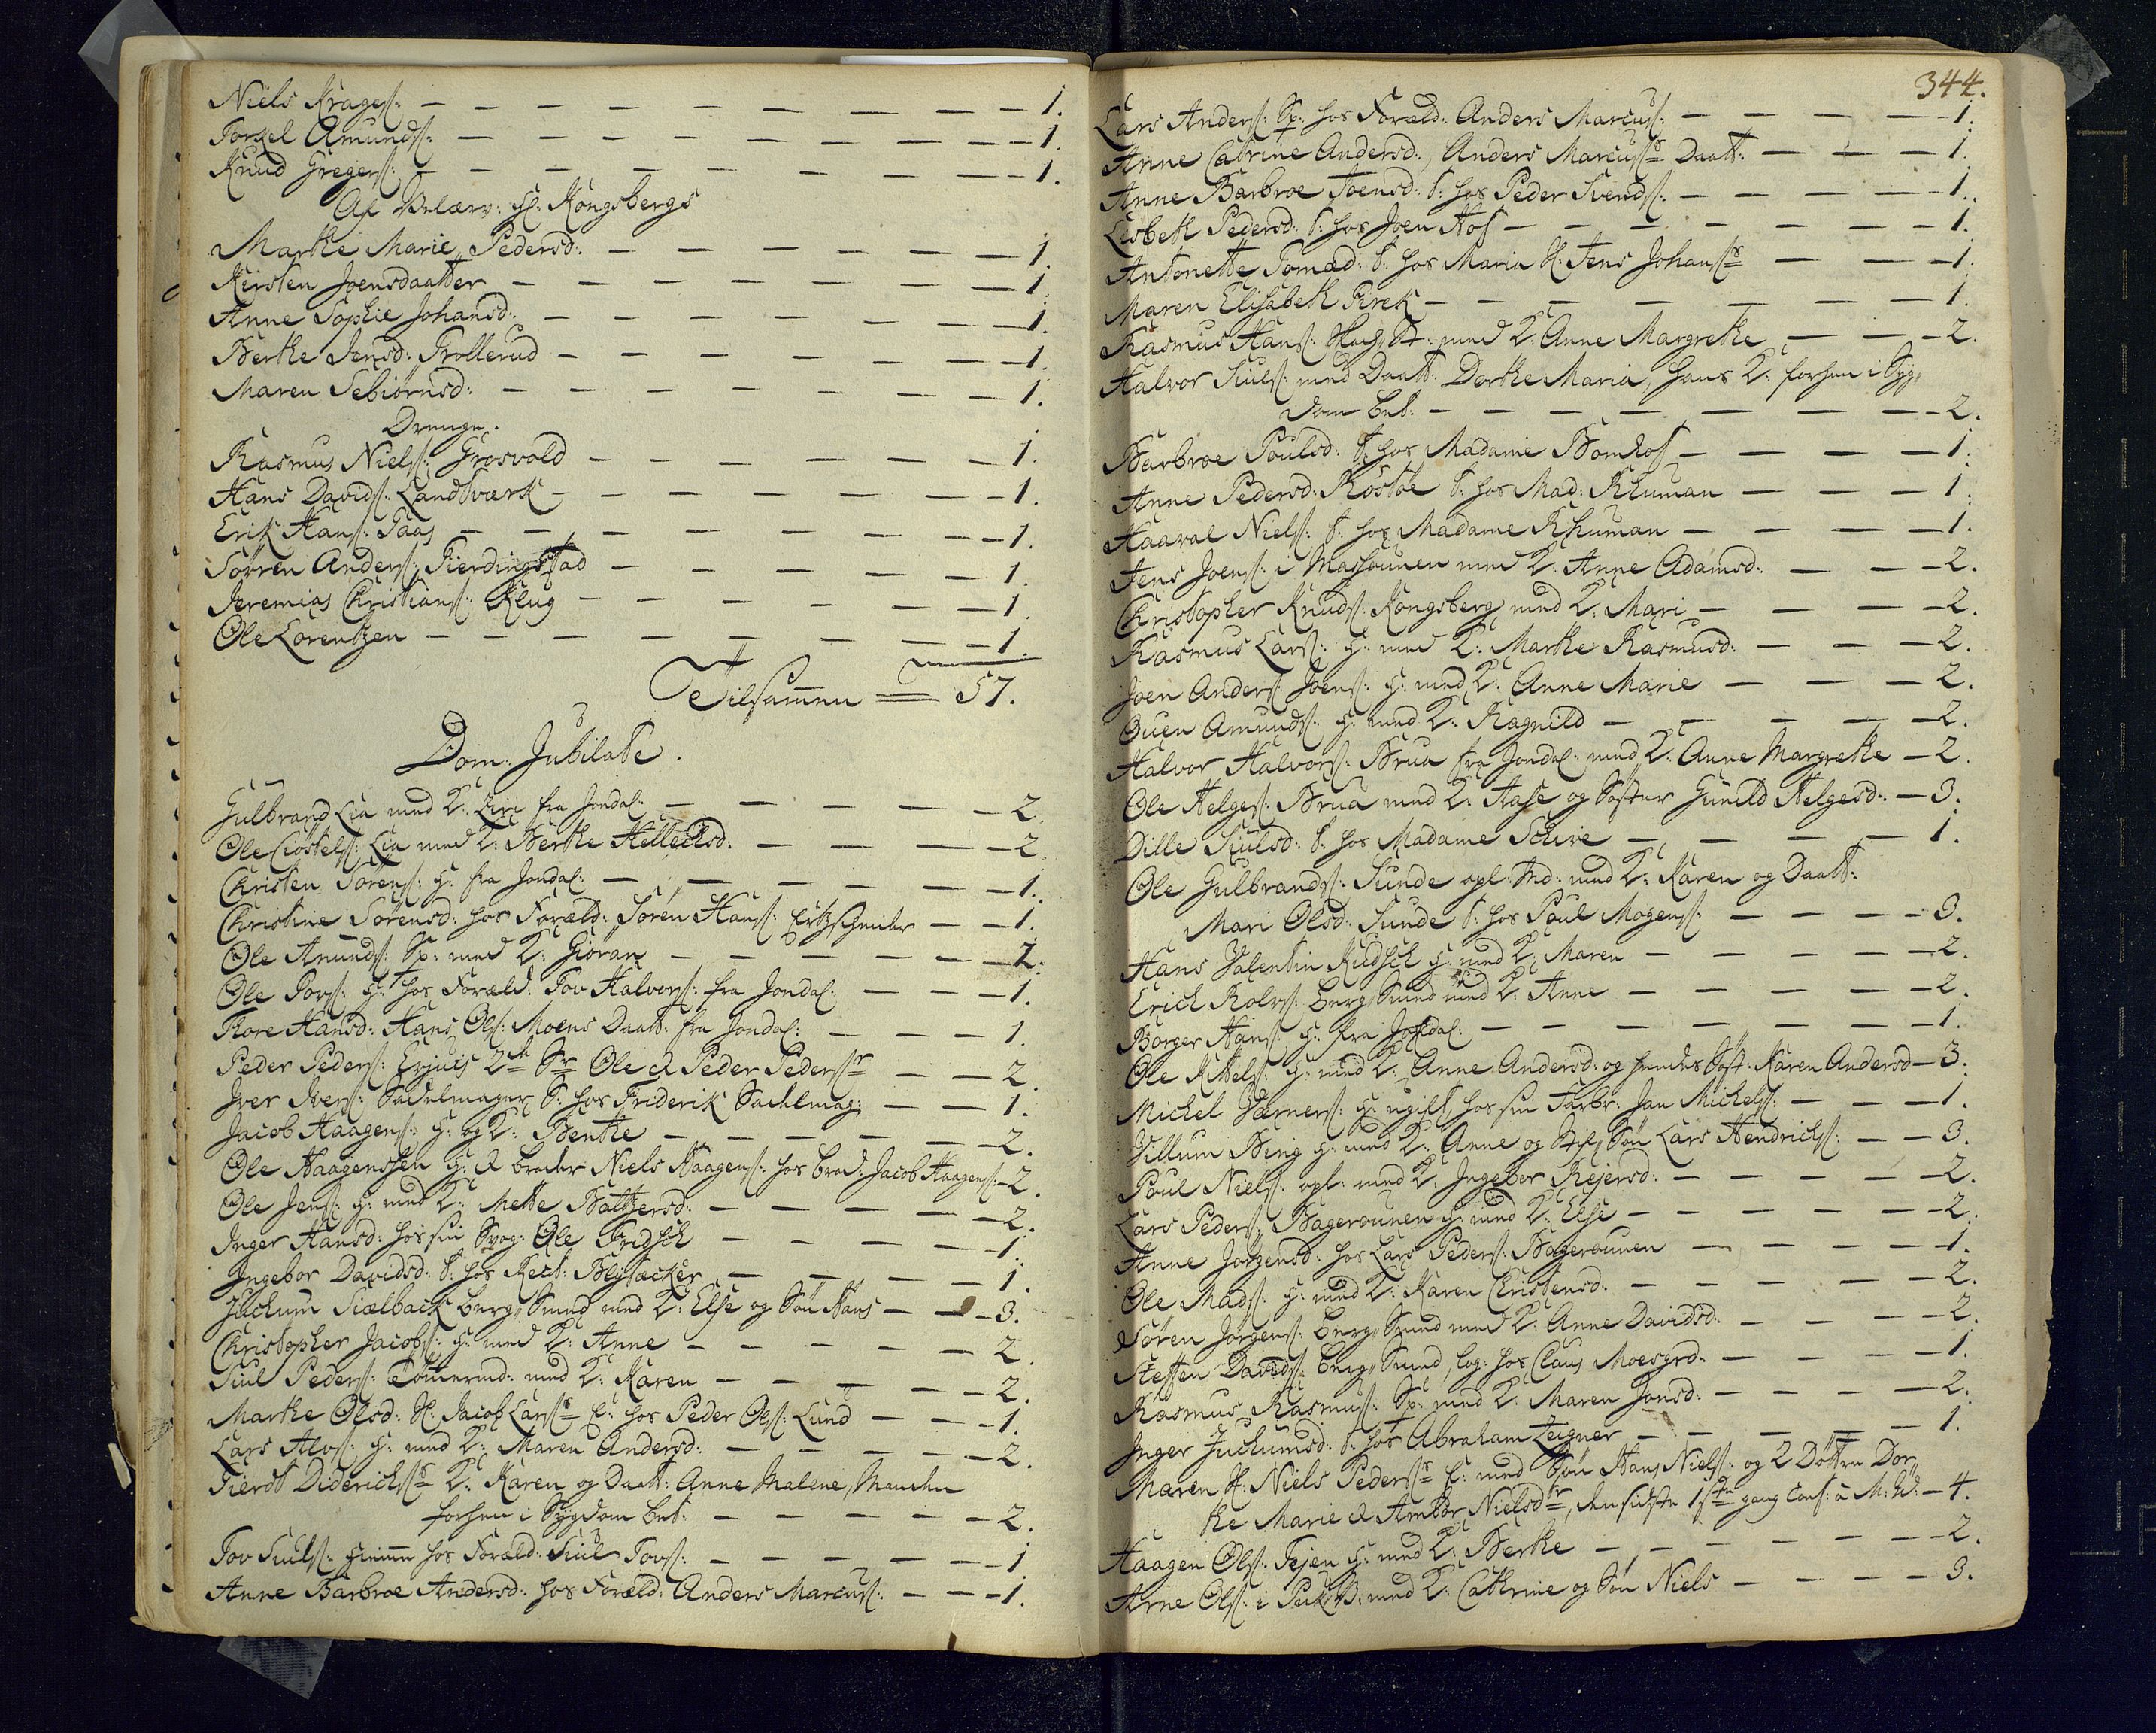 Niels Krages: — 1.
Torgel Amunds: — 1.
Knud Gregers: — 1.
Af H: Kongsbergs
Marthe Marie Pedersd: — 1
Kirsten Joensdaatter — 1.
Anne Sophie Johansd: — 1.
Berthe Jensd: Trollerud — 1.
Maren Sebiörnsd: — 1.
Drenge.
Rasmus Niels: Grosvold — 1.
Hans Davids: Landsværk — 1.
Erik Hans: Paas — 1.
Sörren Anders: Fierdingstad — 1.
Jeremias Christians: Klug — 1.
Ole Lorentzen — 1.
Tilsammen = 57.
Dom: Jubilate.
Gulbrand Lia med K: Liri fra Jondal: — 2.
Ole Kiöstels: Lia med K: Berthe Hellechsd: — 2.
Christen Sörens: H: fra Jondal: — 1.
Christine Sörensd: hos Foræld: Sören Hans: Ertzscheider — 1.
Ole Amunds: Sp: med K: Giöran — 2.
Ole Tovs: H: hos Foræld: Tov Halvors: fra Jondal: — 1.
Thore Hansd: Hans Ols: Moens Daatt: fra Jondal: — 1.
Peder Peders: 2de Sr Ole & Peder Pederssr — 2.
Iver Ivers: Sadelmager S: hos Friderik Sadelmag: — 1.
Jacob Haagens: H: og K: Benthe — 2.
Ole Haagenssen H: & broder Niels Haagens: hos brod: Jacob Haagens: — 2.
Ole Jens: H: med K: Mette Baltzersd: — 2.
Inger Hansd: hos sin Svog: Ole Fridsch — 1.
Ingebor Davidsd: T: hos Rect: Blysacker — 1.
Juchum Siælback berg, Smed med K: Else og Sön Hans — 3.
Christopher Jacobs: H: med K: Anne — 2.
Siul Peders: Tömermd: med K: Karen — 2.
Marthe Olsd: H: Jacob Larssr E: hos Peder Ols: Lund — 1.
Lars Alvs: H: med K: Maren Andersd: — 2.
Fierdt Diderichssr K: Karen og Daatt: Anne Malene, Manden
forhen i Sygdom bet: — 2.
Tov Siuls: hos Foræld: Siul Tovs: — 1
Anne Barbroe Andersd: hos Foræld: Anders Marcus: — 1.
344.
Lars Anders: Sp: hos Foræld: Anders Marcus: — 1.
Anne Catrine Andersd:, Anders Marcussr Daatt: — 1.
Anne Barbroe Joensd: T: hos Peder Svends: — 1.
Lisbeth Pedersd: T: hos Joen Hof — 1.
Antonette Tomæd: T: hos Maria H: Jens Johanssr — 1.
Maren Elisabeth Pirck — 1.
Rasmus Hans: med K: Anne Margrethe — 2.
Halvor Siuls: med Daatt: Dorthe Maria, hans K: forhen i Syg,
dom bet: — 2.
Barbroe Poulsd: T: hos Madame Bomhof — 1.
Anne Pedersd: Röstöe T: hos Mad: Khuman — 1.
Haaval Niels: T: hos Madame Khuman — 1.
Jens Joens: i Masounen med K: Anne Adamsd: — 2.
Christopher Knuds: Kongsberg med K: Mari — 2.
Rasmus Lars: H: med K: Marthe Rasmusd: — 2.
Joen Anders: Joens: H: med K: Anne Marie — 2.
Ouen Amunds: H: med K: Ragnild — 2.
Halvor Halvors: Brua fra Jondal: med K: Anne Margrethe — 2.
Ole Helges: Brua med K: Aase og Söster Gunild Helgesd: — 3.
Dille Siulsd: T: hos Madame Schive — 1.
Ole Gulbrands: Sunde opl: Md: med K: Karen og Daatt:
Mari Olsd: Sunde T: hos Poul Mogens: — 3.
Hans Valentin Rudsch H: med K: Maren — 2.
Erich Rolvs: berg, Smed med K: Anne — 2.
Börger Hans: H: fra Jondal: — 1.
Ole Kittels: H: med K: Anne Andersd: og hendes Söst: Karen Andersd — 3.
Michel Værners: H: ugift, hos sin Farbr: Jan Michels: — 1.
Villum Bing H: med K: Anne og Stif, Sön Lars Hendrichs: — 3.
Poul Niels: opl: med K: Ingebor Rejersd: — 2.
Lars Peders: Bagerounen H: med K: Else — 2.
Anne Jörgensd: hos Lars Peders: Bagerounen — 1.
Ole Mads: H: med K: Karen Christensd: — 2.
Sören Jörgens: berg, Smed med K: Anne Davidsd: — 2.
Steffen Davids: berg, Smed, log: hos Claus Moesgrd: — 1.
Rasmus Rasmus: Sp: med K: Maren Jonsd: — 2.
Inger Juchumsd: T: hos Abraham Zeigner — 1.
Maren H: Niels Pederssr E: med Sön Hans Niels: og 2 Döttre Dor,
the Marie & Ambor Nielsdr, den sidste 1ste gang Conf: à M: W: — 4.
Haagen Ols: Tejen H: med K: Berthe — 2.
Arne Ols: i med K: Cathrine og Sön Niels — 3.